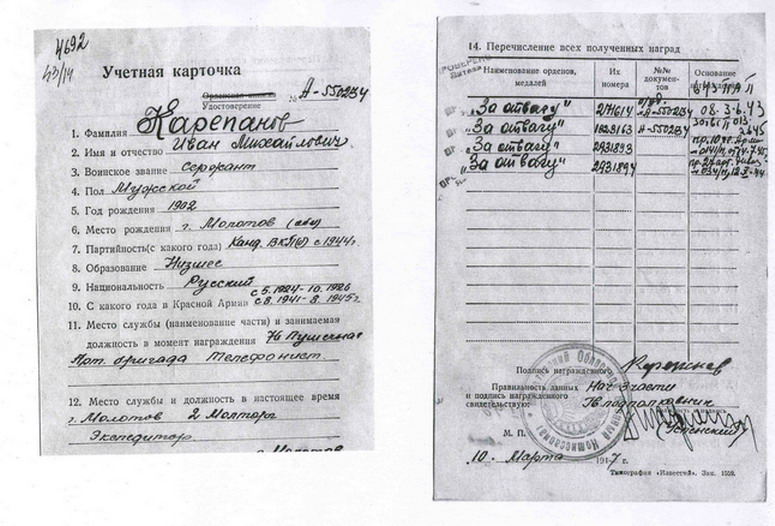 4692
43/14
Учетная карточка
Орденская книжка
Удостоверение № А-550234
1. Фамилия Карепанов
2. Имя и отчество Иван Михайлович
3. Воинское звание Сержант
4. Пол Мужской
5. Год рождения 1902
6. Место рождения г. Молотов
7. Партийность (с какого года) Канд. ВКП(б) с 1944 г.
8. Образование Низшее
9. Национальность Русский
с 5.1924-10.1926
10. С какого года в Красной Армии с 8.1941-8.1945 г.
11. Место службы (наименование части) и занимаемая
должность в момент награждения 76 Пушечная
Арт. бригада Телефонист.
12. Место службы и должность в настоящее время
г. Молотов 2 Молторг
Экспедитор
г. Молотов
14. Перечисление всех полученных наград
ПРОВЕРЕНО
Наименование орденов, медалей
Их номера
№№ документов
Основание
„За отвагу" 217614 А-550234 08.3.6.43
„За отвагу" 1623163 А-550234
„За отвагу" 2931893
„За отвагу" 2931894
Подпись награжденного
Правильность данных Нач 3 части
и подпись награжденного
свидетельствую: Гв подполковник
(Успенский)
М. П.
10. Марта 1947 г.
Типография «Известий». Зак. 1559.